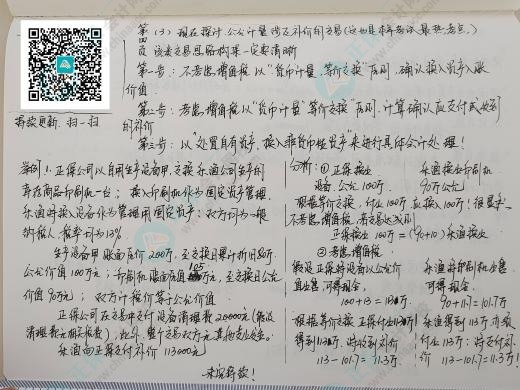 第四页
（3）现在探讨，公允计量涉及补价的交易（这也是本年考试最热考点）
该类交易思路构架一定要清晰
第一步：不考虑增值税以"货币计量、等价交换"原则，确认换入资产入账
价值
第二步：考虑增值税以"货币计量等价交换"原则，计算确认应支付或收到
的补价
第三步：以"处置自有资产，换入非货币性资产"来进行具体会计处理！
持续更新 扫一扫
举例1.正保公司以自用生产设备甲，交换乐渔公司生产的
库存商品印刷机一台；换入印刷机作为固定资产管理，
乐渔对换入设备作为管理用固定资产；双方均为一般
纳税人，税率均为13%
生产设备甲账面原价200万，至交换日累计折旧80万
公允价值100万元；印刷机账面价值105万元，至交换日公允
价值90万元；双方计税价等于公允价值
正保公司在交易中支付设备清理费20000元（假设
清理费无相关税费）；此外，整个交易双方无其他支出发生。
乐渔向正保支付补价113000元
未完待续！
分析：①正保换出 乐渔换出印刷机
设备，公允100万 90万公允
根据等价交换，付出100万应换入100万！很显然
不考虑增值税，若交易达成则
正保换出100万=（90+10）乐渔换出
②考虑增值税
假设正保将设备以公允价 乐渔将印刷机出售
直出售可得现金， 可得现金
100+13=113万 90+11.7=101.7万
根据等价交换正保付出113万 乐渔得到113万
得到113万，应收到补价 应支付补
113-101.7=11.3万 价 113-101.7=11.3万！